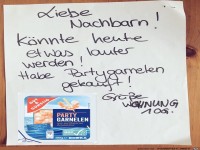 Liebe
Nachbarn!
Könnte heute
etwas lauter
werden!
Habe Partygarnelen
gekauft!
Grüße
WOHNUNG
PARTY
GARNELEN